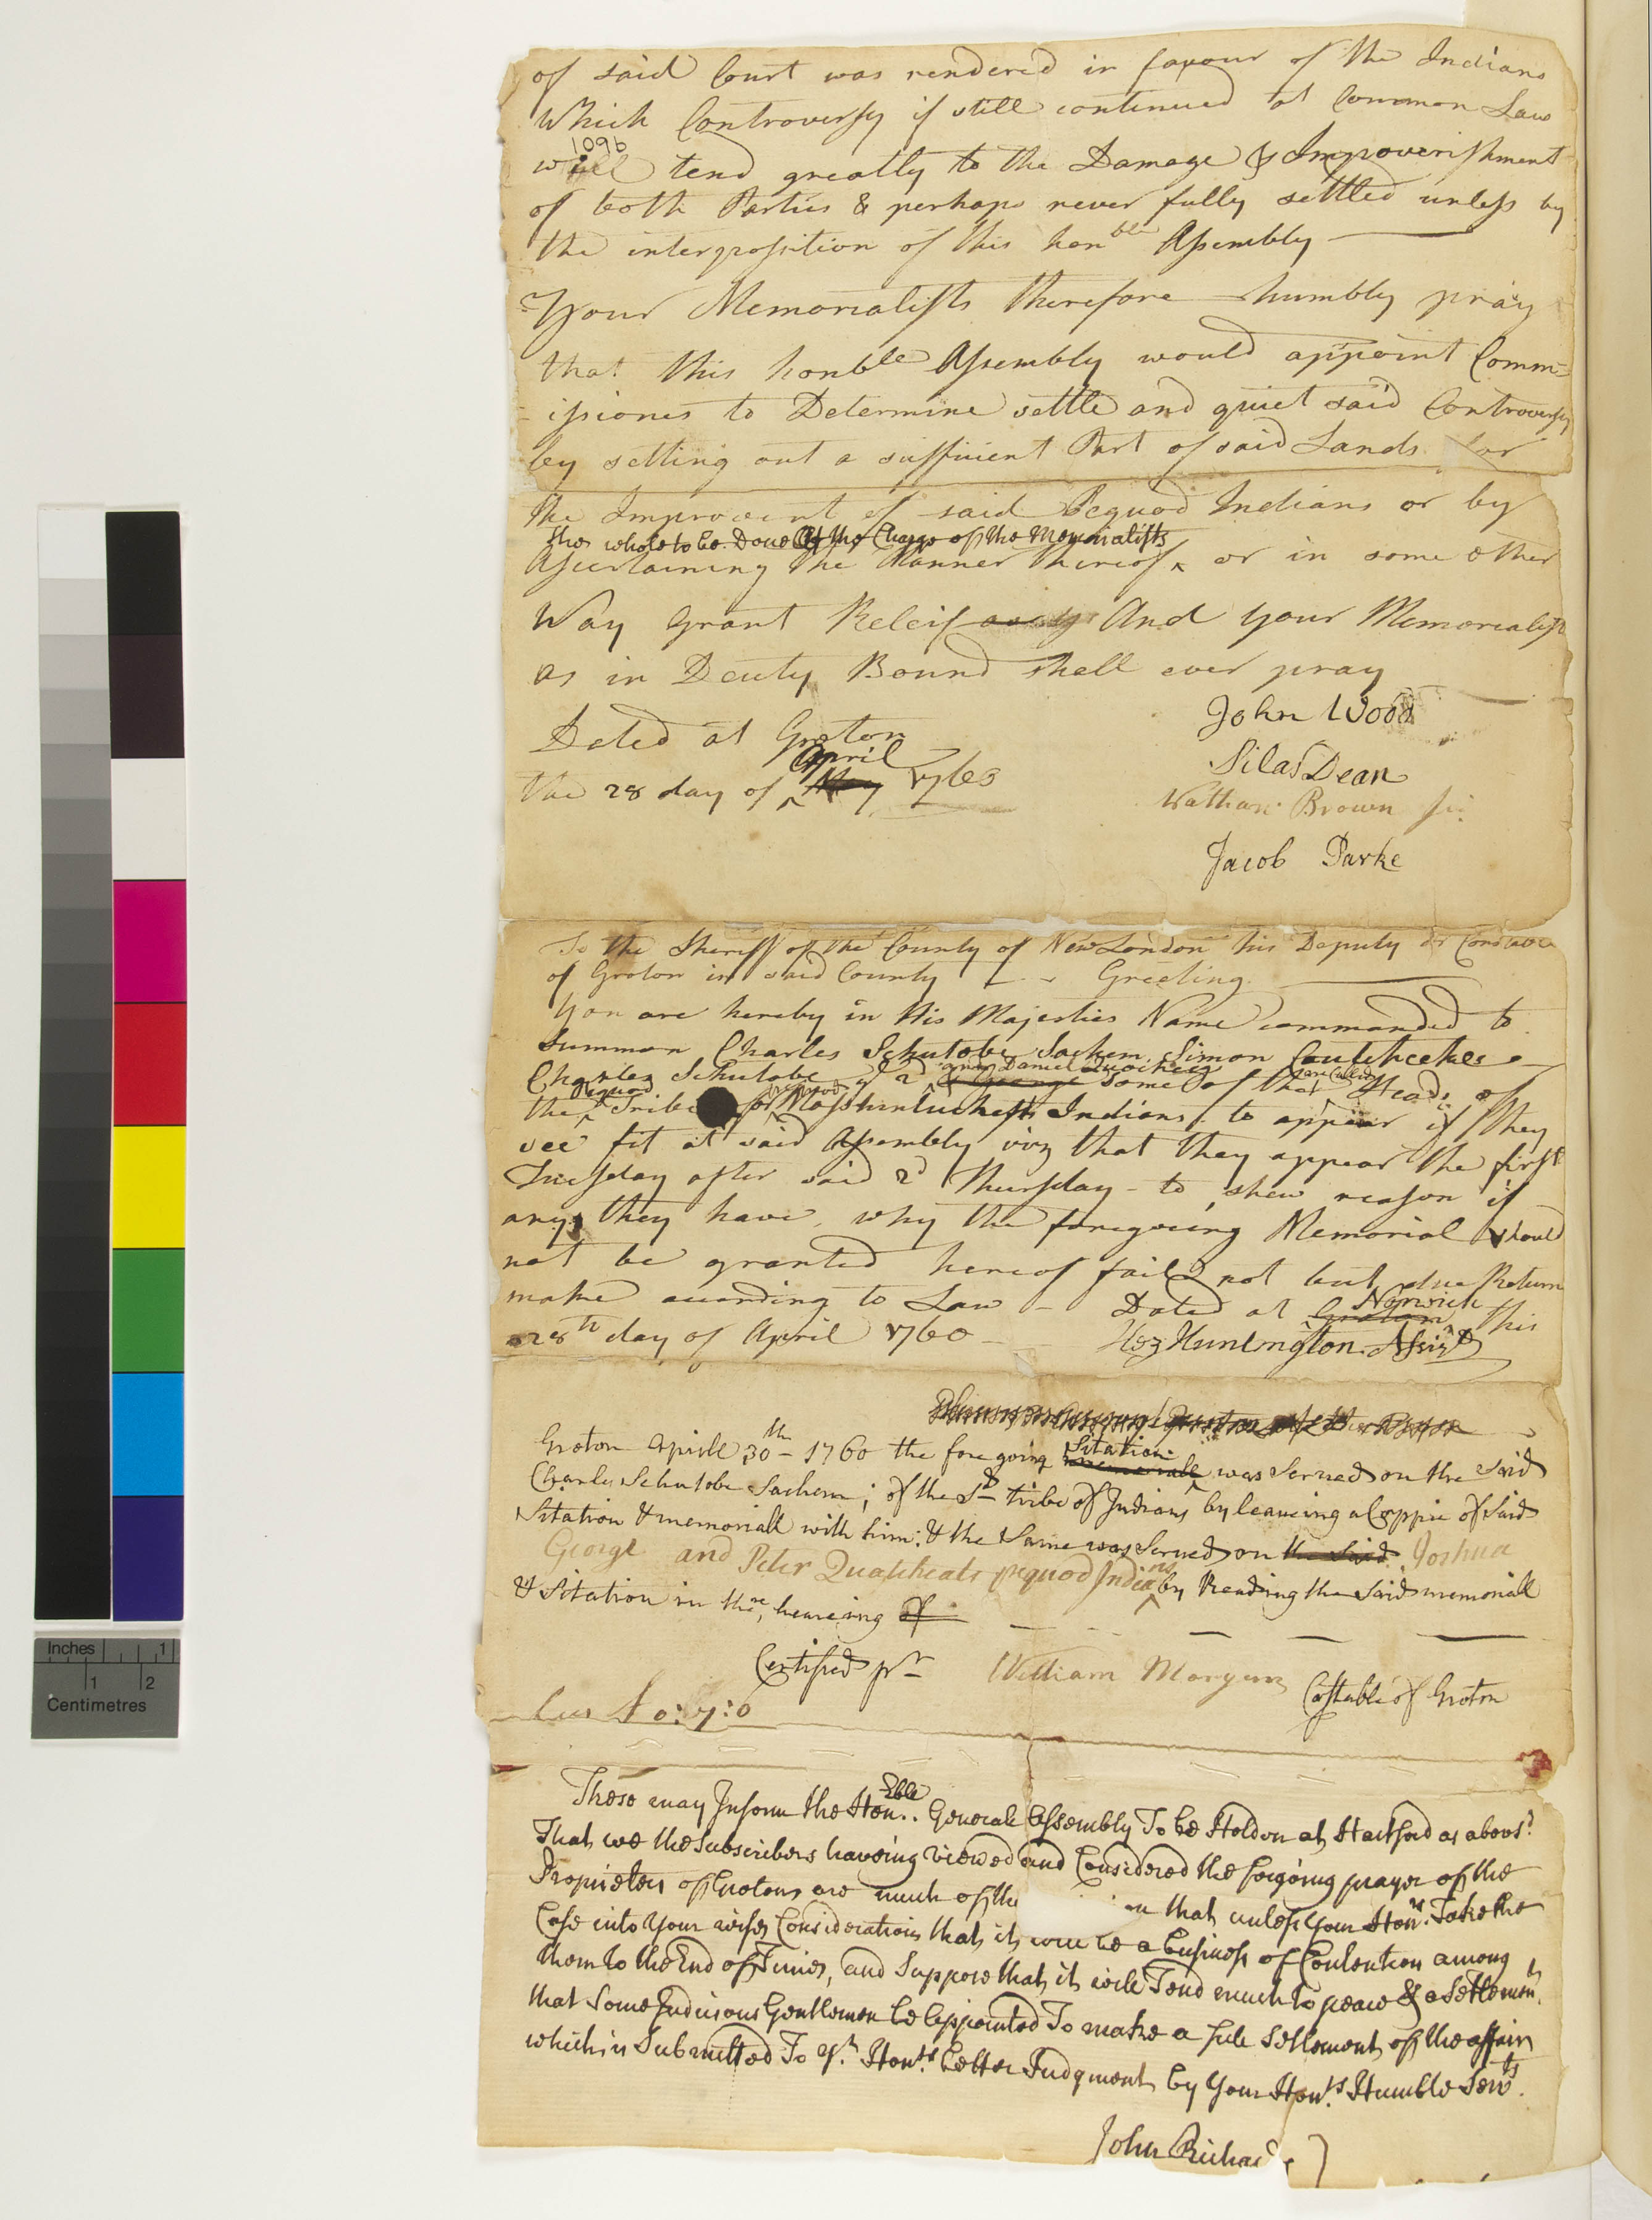 of said Court was rendered in favour of the Indians
Which Controversy if still continued at Common Law
1096
will tend greatly to the Damage & Impoverishment
of both Parties & perhaps never fully settled unless by
the interposition of this honble Assembly
Your Memorialists therefore humbly pray
that this honble Assembly would appoint Comm=
=issiones to Determine settle and quiet said Controversy
by setting out a sufficient Part of said Lands for
the Improvement of said Pequod Indians or by
the whole to be Done At the Charge of the Memorialists
Ascertaining the Manner thereof ‸ or in some other
Way Grant Releif And Your Memorialists
as in Deuty Bound shall ever pray
John Wood
Dated at Groton
Silas Dean
April
the 28 day of ‸ May 1760
Nathan Brown Jr.
Jacob Parke
To the Sheriff of the County of New London his Deputy or Constable
of Groton in said County - - Greeting
You are hereby in His Majesties Name commanded to
Summon Charles Schutobe Sachem Simon
and Daniel Quocheets
Charles Schutobe ye 2d ‸ & George some of the Heads of
Pequod
the ‸ Tribe of Mashuntuckett Indians to appear if they
see fit at said Assembly viz that they appear the first
Tuesday after said 2d Thursday - to shew reason if
any they have, why the foregoeing Memorial should
not be granted hereof fail not but due Return
Norwich
make according to Law - Dated at Groton this
28th day of April 1760 - Hez Huntington Assist
Groton aprill 30th - 1760 the fore going memoriall Sitation was Served on the Said
Charles Schutobe Sachem; of the Sd tribe of Indians ‸ by leaveing a Coppie of Said
Sitation & memoriall with him: & the Same was Served on the Said Joshua
George and Peter Quacheats pequod Indians ‸ by Reading the Said memoriall
& Sitation in there heareing of
Certified pr William Morgan Constable of Groton
0:7:0
These may Inform the Honble General Assembly To be Holden at Hartford as above
That we the Subscribers haveing viewed and Considered the forgoing prayer of the
Proprietors of Groton are much of the on that unless your Honrs Take the
Case into Your wise Consideration that it will be a Business of Contention among
them to the End of Times, and Suppose that it will Tend much to peace & a Settlement
that Some Judicious Gentlemen be Appointed To make a full Settlement of the affair
which is Submitted To yr Honrs better Judgment by Your Honrs Humble Servts
John Richards